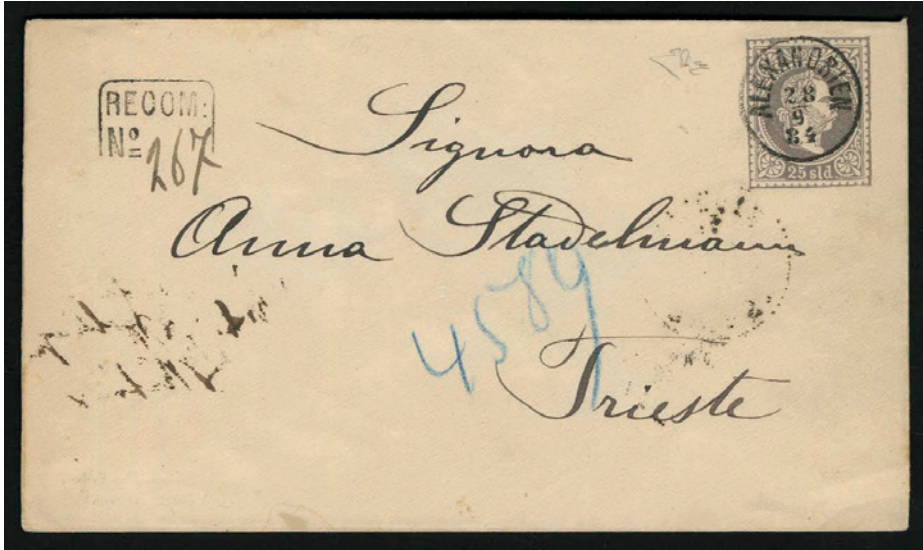 RECOM:
Nº 267
ALEXANDRIEN
28
9
84
25 sld
Signora
Anna Stadelmann
4589
Trieste